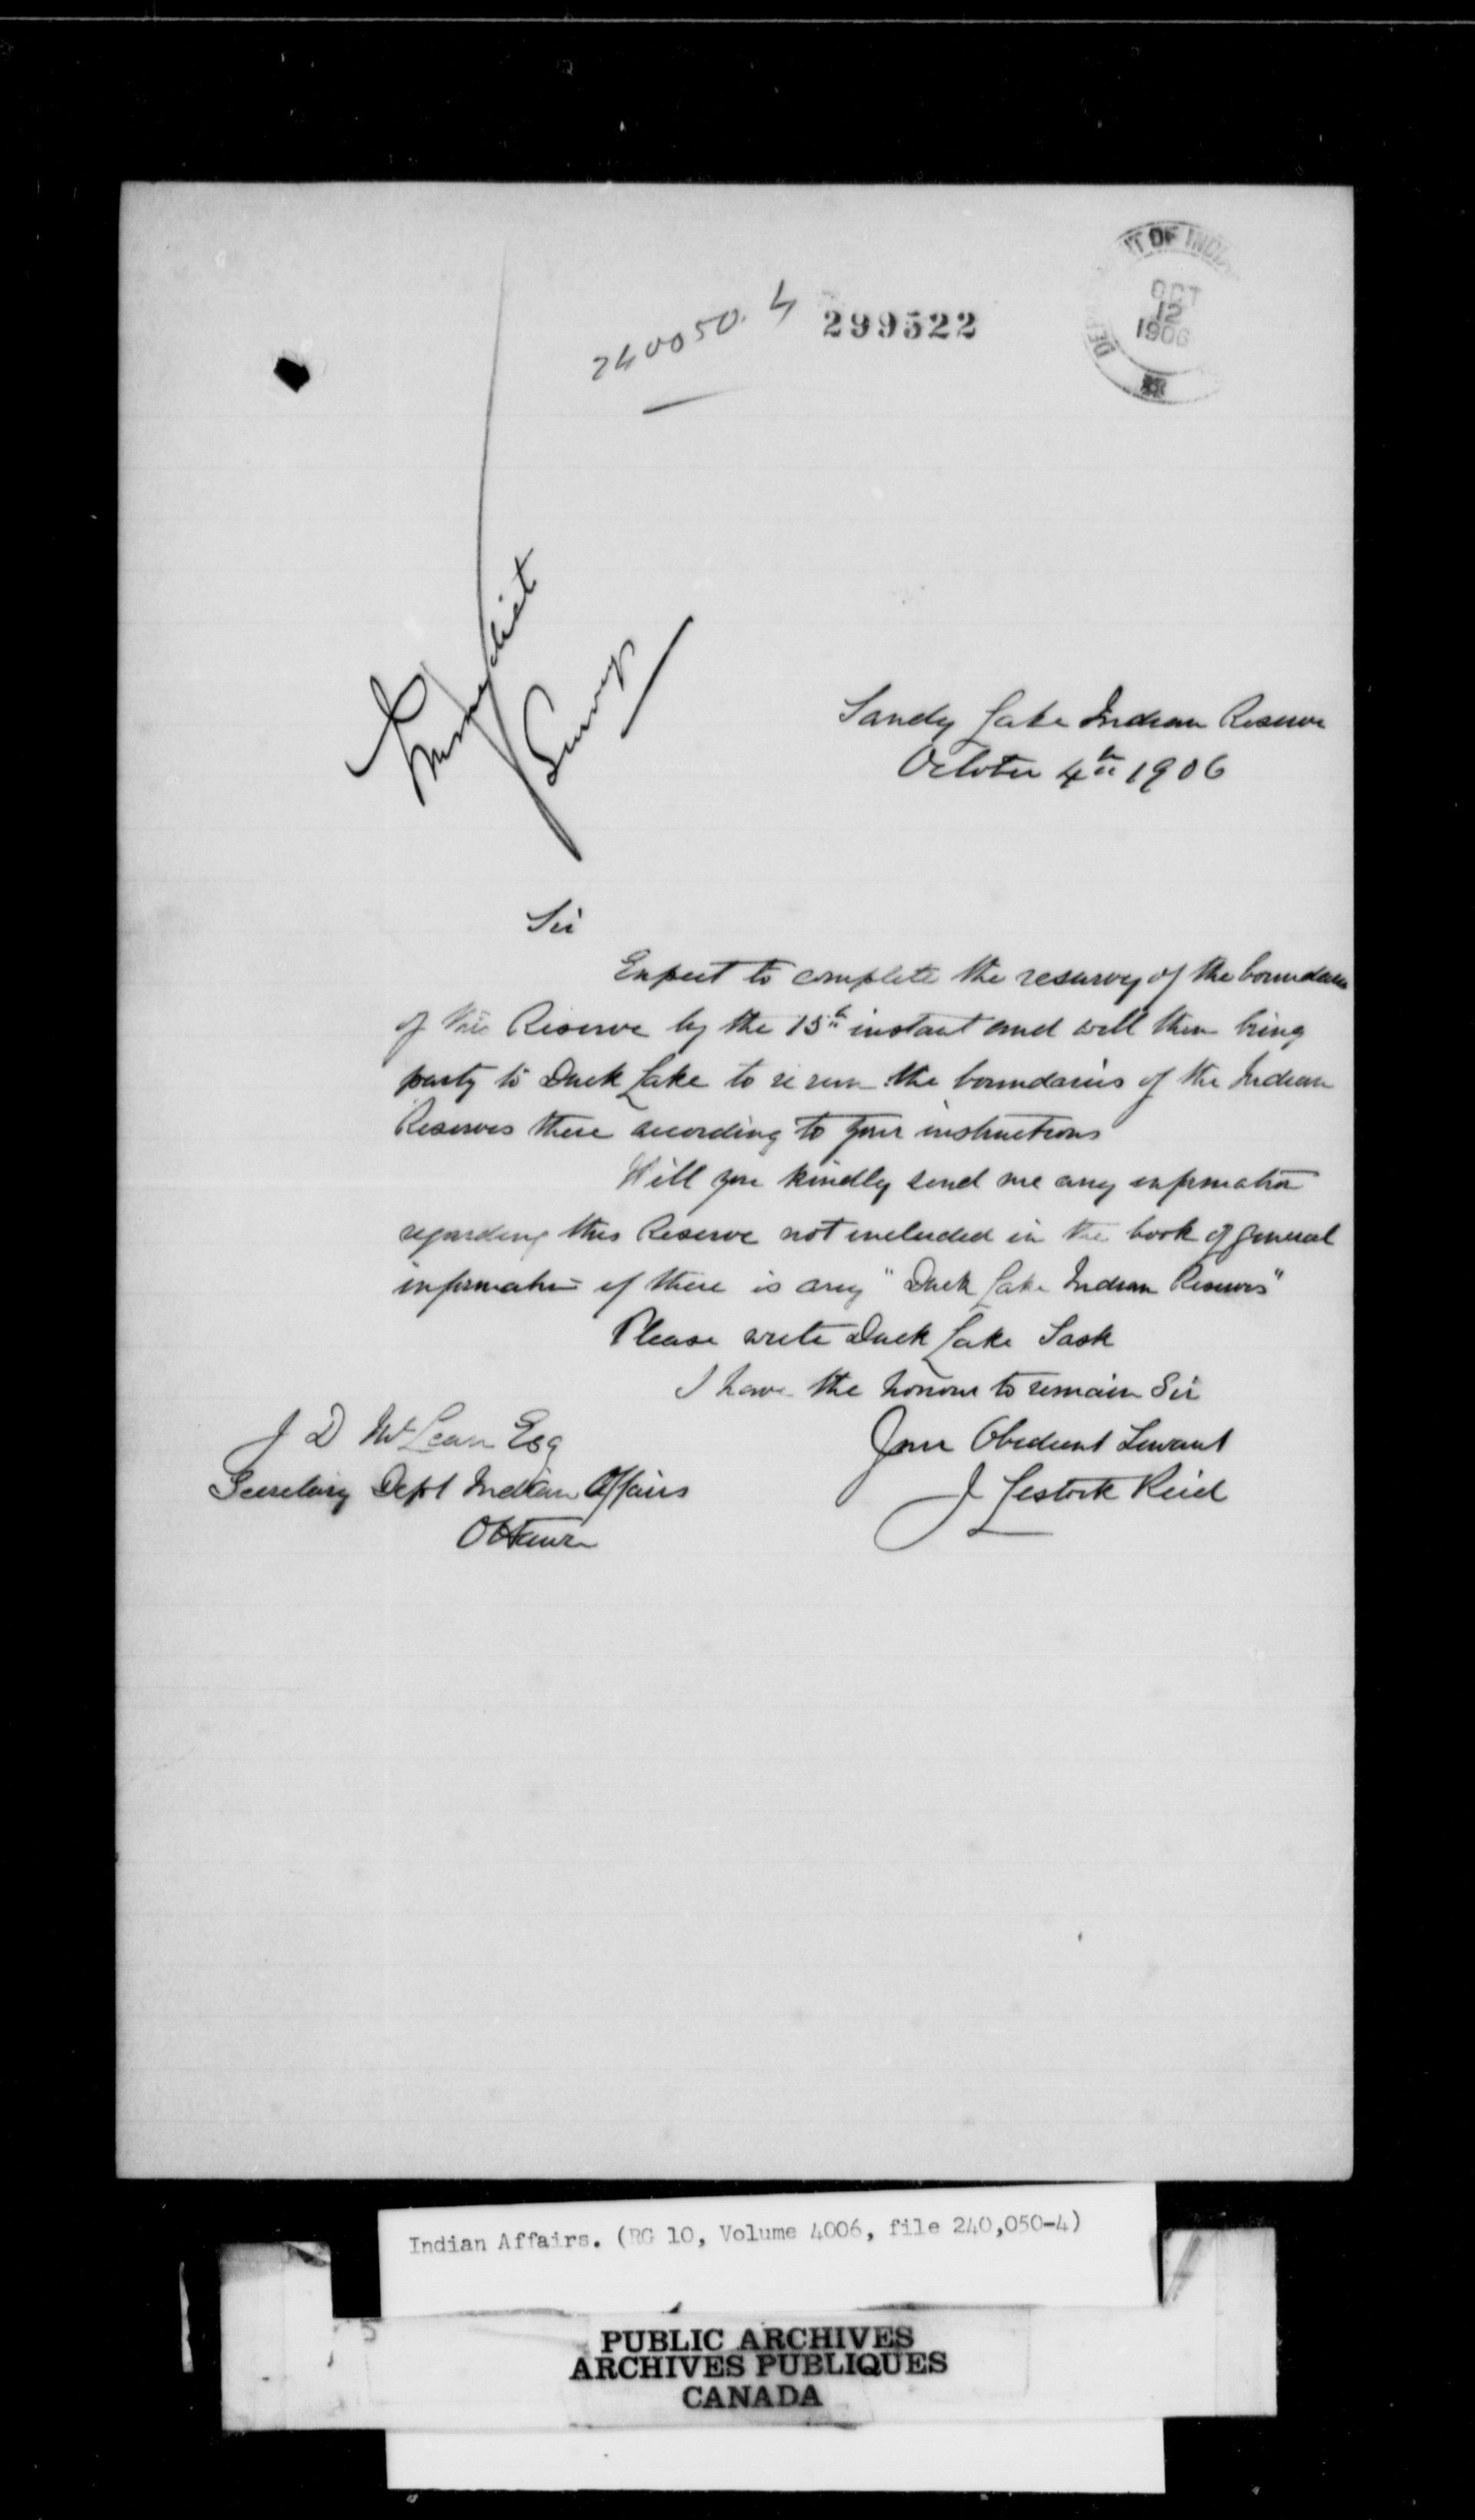 240050.4
299522
T OF INDI
OCT
12
1906
DEP
Immediate
Survey
Sandy Lake Indian Reserve
October 4th 1906
Sir
Expect to complete the resurvey of the boundaries
of this Reserve by the 15th instant and will then bring
party to Duck Lake to re run the boundaries of the Indian
Reserves there according to your instructions
Will you kindly send me any information
regarding this Reserve not included in the book of general
information if there is any "Duck Lake Indian Reserves"
Please write Duck Lake Sask
I have the honour to remain Sir
Your Obedient Servant
J Lestock Reid
J D McLean Esq
Secretary Dept Indian Affairs
Ottawa
Indian Affairs. (RG 10, Volume 4006, file 240,050-4)
PUBLIC ARCHIVES
ARCHIVES PUBLIQUES
CANADA